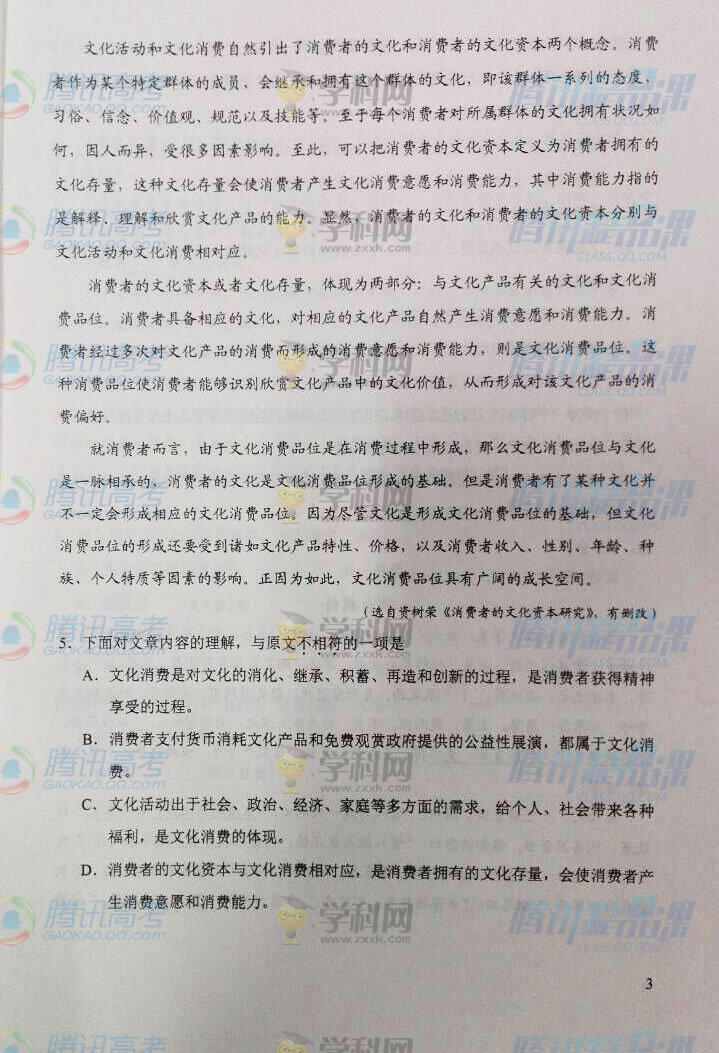 文化活动和文化消费自然引出了消费者的文化和消费者的文化资本两个概念。消费
者作为某个特定群体的成员，会继承和拥有这个群体的文化，即该群体一系列的态度、
习俗、信念、价值观、规范以及技能等。至于每个消费者对所属群体的文化拥有状况如
何，因人而异，受很多因素影响。至此，可以把消费者的文化资本定义为消费者拥有的
文化存量，这种文化存量会使消费者产生文化消费意愿和消费能力，其中消费能力指的
是解释、理解和欣赏文化产品的能力。显然，消费者的文化和消费者的文化资本分别与
文化活动和文化消费相对应。
消费者的文化资本或者文化存量，体现为两部分：与文化产品有关的文化和文化消
费品位。消费者具备相应的文化，对相应的文化产品自然产生消费意愿和消费能力。消
费者经过多次对文化产品的消费而形成的消费意愿和消费能力，则是文化消费品位。这
种消费品位使消费者能够识别欣赏文化产品中的文化价值，从而形成对该文化产品的消
费偏好。
就消费者而言，由于文化消费品位是在消费过程中形成，那么文化消费品位与文化
是一脉相承的，消费者的文化是文化消费品位形成的基础。但是消费者有了某种文化并
不一定会形成相应的文化消费品位。因为尽管文化是形成文化消费品位的基础，但文化
消费品位的形成还要受到诸如文化产品特性、价格，以及消费者收入、性别、年龄、种
族、个人特质等因素的影响。正因为如此，文化消费品位具有广阔的成长空间。
（选自资树荣《消费者的文化资本研究》，有删改）
5．下面对文章内容的理解，与原文不相符的一项是
A．文化消费是对文化的消化、继承、积蓄、再造和创新的过程，是消费者获得精神
享受的过程。
B．消费者支付货币消耗文化产品和免费观赏政府提供的公益性展演，都属于文化消
费。
C．文化活动出于社会、政治、经济、家庭等多方面的需求，给个人、社会带来各种
福利，是文化消费的体现。
D．消费者的文化资本与文化消费相对应，是消费者拥有的文化存量，会使消费者产
生消费意愿和消费能力。
3
腾讯高考
GAOKAO.QQ.COM
学科网
www.zxxk.com
腾讯精品课
CLASS.QQ.COM